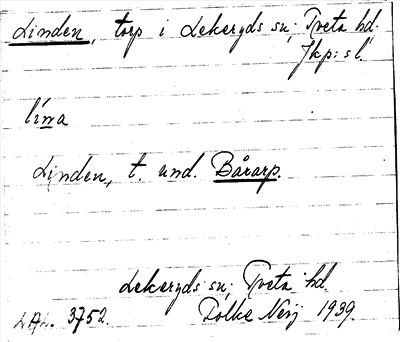 Linden, torp i Lekeryds sn; Tveta hd.
Jkp:s l.
línna
Linden, t. und. Bårarp.
Lekeryds sn; Tveta hd.
LAL. 3752. Folke Nerj 1939.